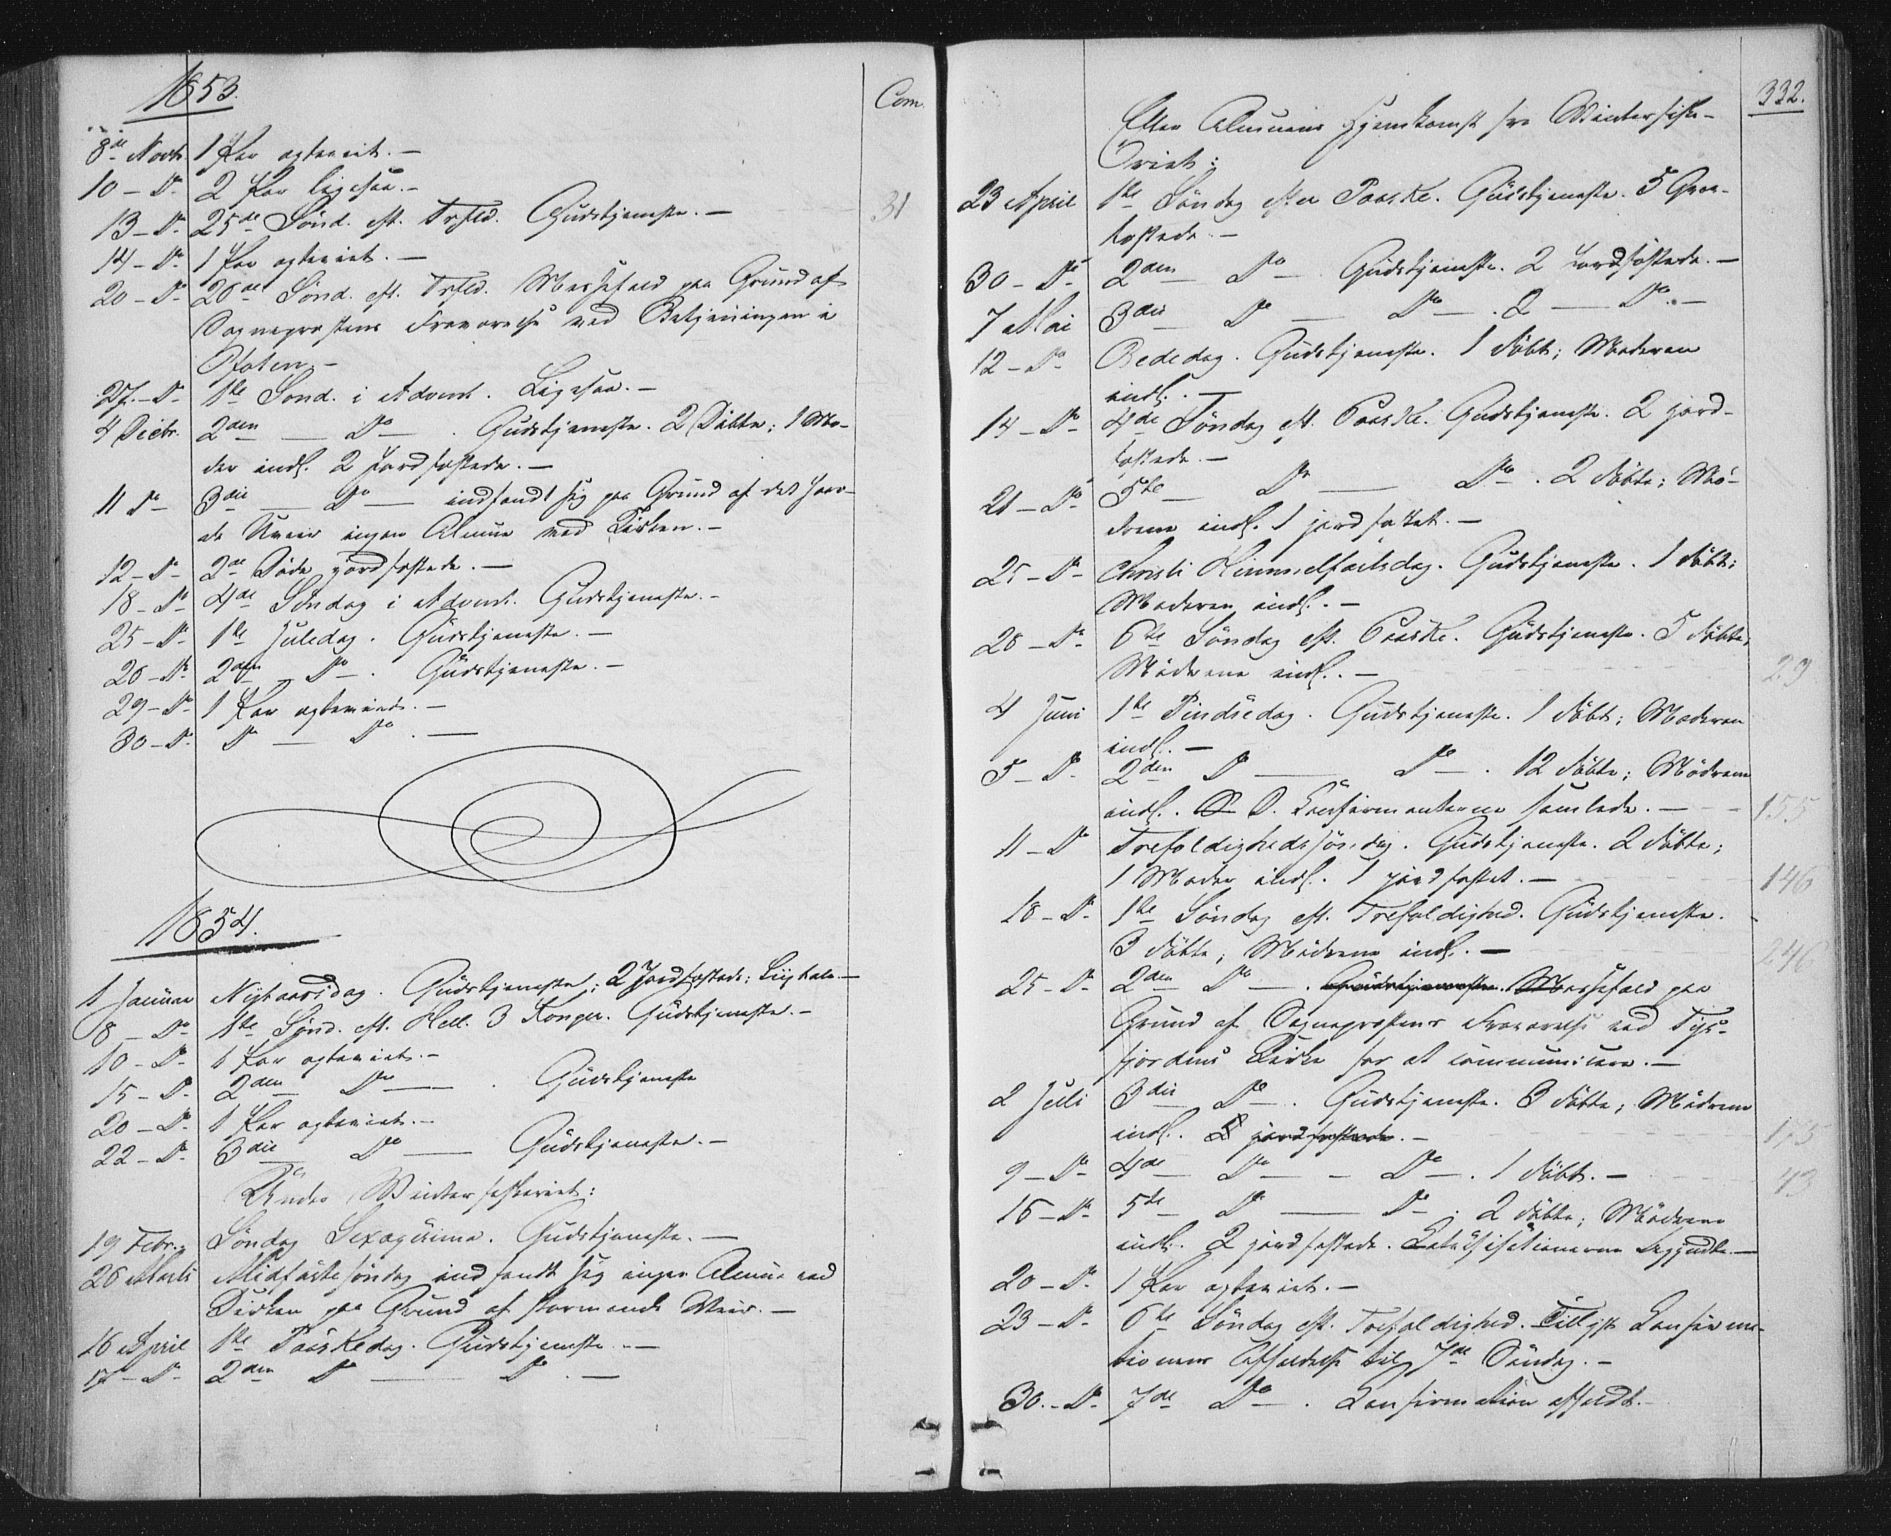 1853.
Com.
8de Novbr. 1 Par ægteviet. —
10 — Do 2 Par ligesaa. —
13 — Do 25de Sønd. eft. Trfld. Gudstjeneste. — 31
14 — Do 1 Par ægteviet. —
20 — Do 26de Sønd. eft. Trfld. Messefald paa Grund af
Sognepræstens Fraværelse ved Betjeningen i
Ofoten. —
27 — Do 1ste Sønd. i Advent. Ligesaa. —
4 Decbr. 2den — Do — . Gudstjeneste. 2 Döbte; 1 Mo-
der indl. 2 Jordfæstede. —
11 Do 3die — Do — indfandt sig paa Grund af det haar-
de Uveir ingen Almue ved Kirken. —
12 — Do 2de Döde jordfæstede. —
18 — Do 4de Søndag i Advent. Gudstjeneste. —
25 — Do 1ste Juledag. Gudstjeneste. —
26 — Do 2den — Do — . Gudstjeneste. —
29 — Do 1 Par ægteviet. —
30 — Do Do — Do . —
1854.
1 Januar Nytaarsdag. Gudstjeneste; 2 Jordfæstede; —
18 — Do 1ste Sønd. eft. Hell. 3 Konger. Gudstjeneste. —
10 — Do 1 Par ægteviet. —
15 — Do 2den Do — . Gudstjeneste
20 — Do 1 Par ægteviet. —
22 — Do 3die Do — Gudstjeneste. —
Under Vinterfiskeriet:
19 Febr. Søndag Sexagesima. Gudstjeneste. —
26 Marts Midfastesøndag indfandt sig ingen Almue ved
Kirken paa Grund af stormende Veir. —
16 April 1ste Paaskedag. Gudstjeneste. —
17 — Do 2den Do — Do . —
332.
Efter Almuens Hjemkomst fra Vinterfiske-
riet:
23 April 1ste Søndag efter Paaske. Gudstjeneste. 5
fæstede. —
30 — Do 2den Do — Gudstjeneste. 2 Jordfæstede. —
7 Mai 3die — Do — Do — . 2 — Do. —
12 — Do Bededag. Gudstjeneste. 1 döbt; Moderen
indl. —
14 — Do 4de Søndag eft. Paaske. Gudstjeneste. 2 jord-
fæstede. —
21 — Do 5te — Do — Do — . 2 döbte; Mö-
drene indl. 1 jordfæstet. —
25 — Do Christi Himmelfartsdag. Gudstjeneste. 1 döbt;
Moderen indl. —
28 — Do 6te Søndag eft. Paaske. Gudstjeneste. 5 döbte;
Mödrene indl. — 29
4 Juni 1ste Pindsedag. Gudstjeneste. 1 döbt; Moderen
indl. —
5 — Do 2den Do — Do — . 12 döbte; Mödrene
indl. D. Confirmanterne samlede. — 155
11 — Do Trefoldighedssøndag. Gudstjeneste. 2 döbte;
1 Moder indl. 1 jordfæstet. — 146
18 — Do 1ste Søndag eft. Trefoldighed. Gudstjeneste.
3 döbte; Mödrene indl. — 246
25 — Do 2den Do — . Gudstjeneste. Messefald paa
Grund af Sognepræstens Fraværelse ved Tys-
fjordens Kirke for at communicere. —
2 Juli 3die Do — . Gudstjeneste. 3 döbte; Mödrene
indl. 2 jordfæstede. — 175
9 — Do 4de — Do — — Do — . 1 döbt. — 73
16 — Do 5te Do — Do . 2 döbte; Mödrene
indl. 2 jordfæstede. Catechisationerne begyndte. —
20 — Do 1 Par ægteviet. —
23 — Do 6te Søndag eft. Trefoldighed. Confirma-
tionens til 7de Söndag. —
30. — Do 7de Do — . Confirmation afholdt. —